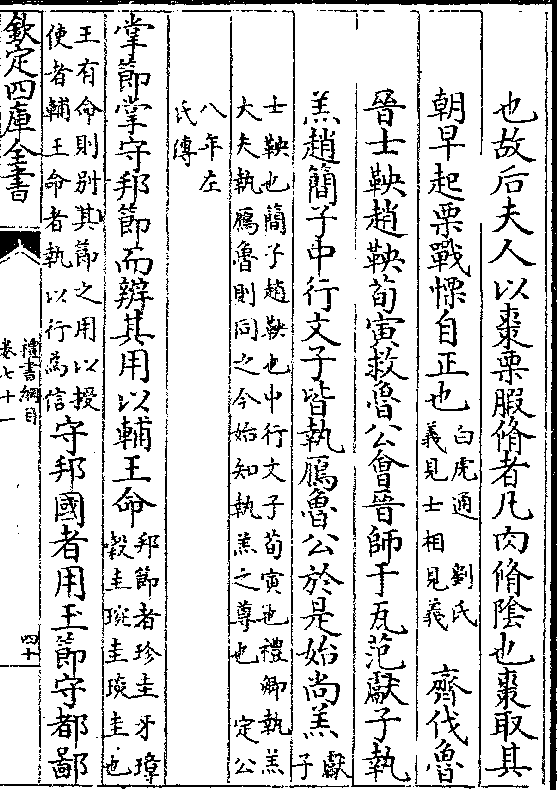 也故后夫人以棗栗腶脩者凡肉脩陰也棗取其
朝早起栗戰慄自正也
白虎通
義見士相見義
劉氏
齊伐魯
晉士鞅趙鞅荀寅救魯公會晉師于瓦范獻子執
羔趙簡子中行文子皆執鴈魯公於是始尚羔
獻
子
士鞅也簡子趙鞅也中行文子荀寅也禮卿執羔
大夫執鴈魯則同之今始知執羔之尊也
定公
八年左
氏傳
掌節掌守邦節而辨其用以輔王命
邦節者珍圭牙璋
穀圭琬圭琰圭也
王有命則别其節之用以授
使者輔王命者執以行為信
守邦國者用玉節守都鄙
欽定四庫全書
禮書綱目
卷七十一
四十